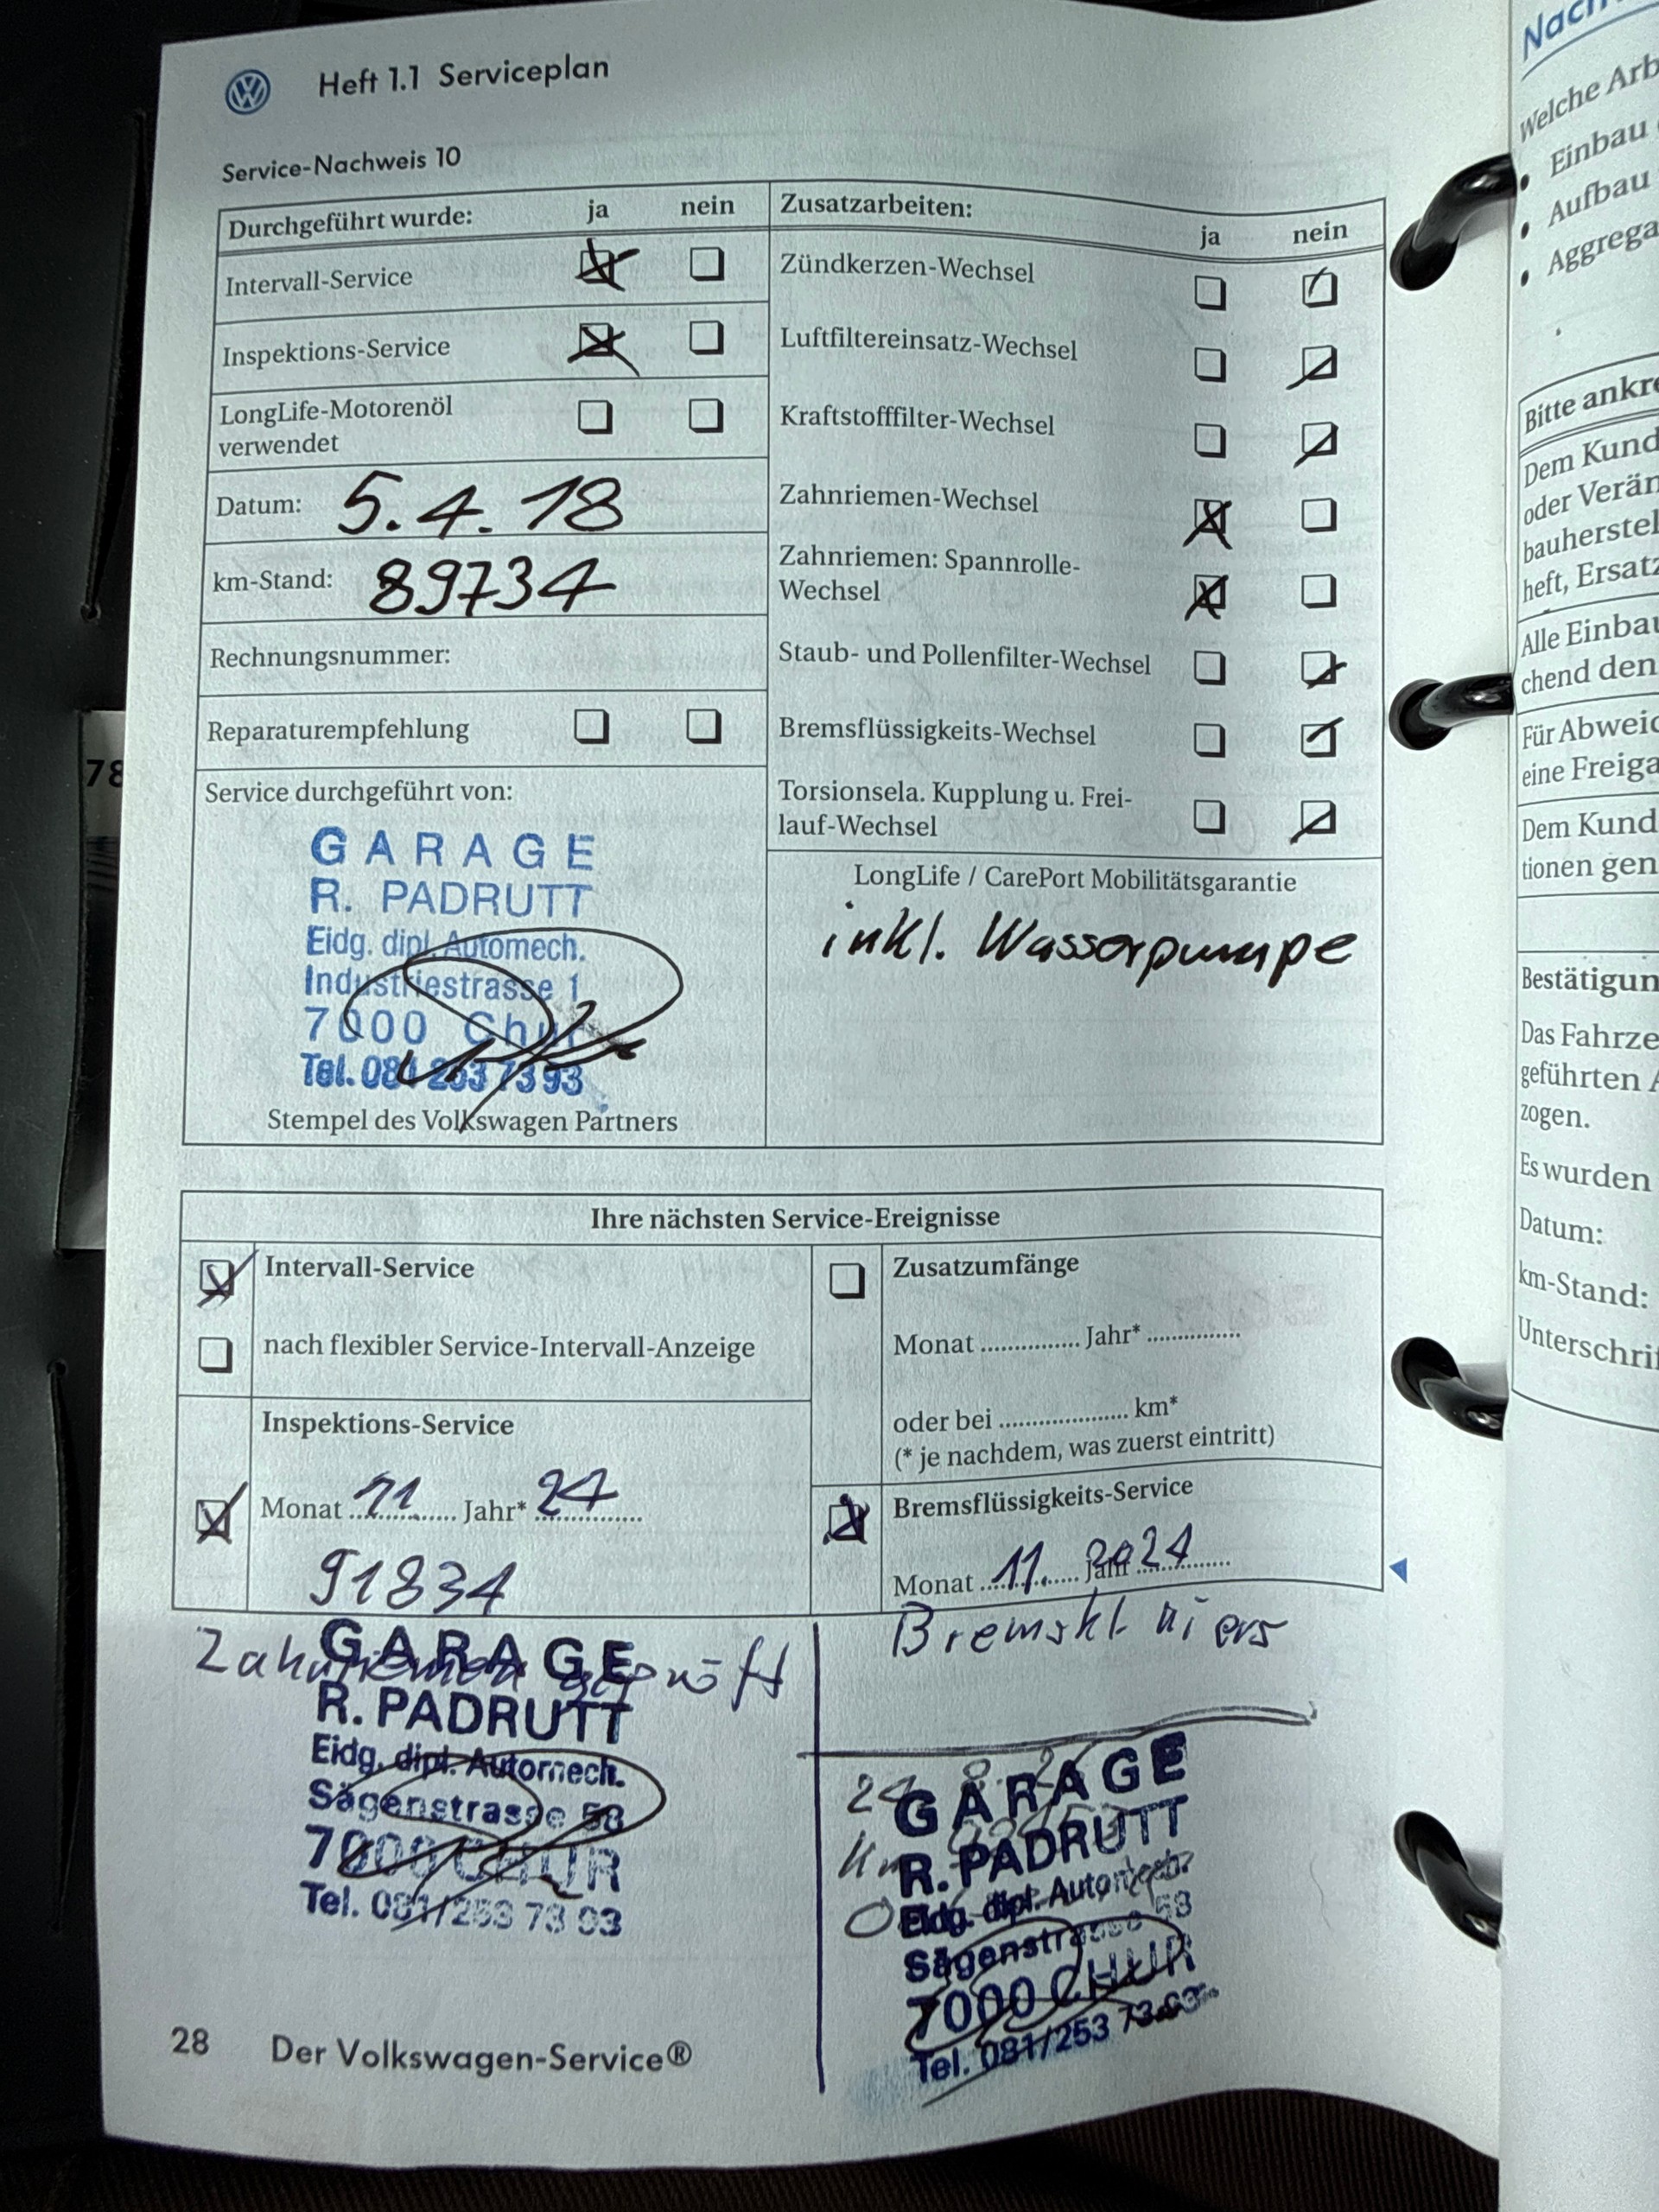 Heft 1.1 Serviceplan
Service-Nachweis 10
Durchgeführt wurde: ja nein
Intervall-Service
Inspektions-Service
LongLife-Motorenöl
verwendet
Datum: 5.4.18
km-Stand: 89734
Rechnungsnummer:
Reparaturempfehlung
Service durchgeführt von:
GARAGE
R. PADRUTT
Eidg. dipl. Automech.
Industriestrasse 1
7000 Chur
Tel. 081 253 73 93
Stempel des Volkswagen Partners
Zusatzarbeiten:
ja nein
Zündkerzen-Wechsel
Luftfiltereinsatz-Wechsel
Kraftstofffilter-Wechsel
Zahnriemen-Wechsel
Zahnriemen: Spannrolle-
Wechsel
Staub- und Pollenfilter-Wechsel
Bremsflüssigkeits-Wechsel
Torsionsela. Kupplung u. Frei-
lauf-Wechsel
LongLife / CarePort Mobilitätsgarantie
inkl. Wasserpumpe
Ihre nächsten Service-Ereignisse
Intervall-Service
nach flexibler Service-Intervall-Anzeige
Inspektions-Service
Monat 11 Jahr* 24
91834
Zusatzumfänge
Monat ............... Jahr* ...............
oder bei .................... km*
(* je nachdem, was zuerst eintritt)
Bremsflüssigkeits-Service
Monat 11. Jahr 2024
Zahnriemen geprüft
GARAGE
R. PADRUTT
Eidg. dipl. Automech.
Sägenstrasse 58
7000 CHUR
Tel. 081/253 73 93
GARAGE
R. PADRUTT
Eidg. dipl. Automech.
Sägenstrasse 58
7000 CHUR
Tel. 081/253 73 93
28 Der Volkswagen-Service®
78
Welche Arb
• Einbau
• Aufbau
• Aggrega
Bitte ankre
Dem Kund
oder Verän
bauherstel
heft, Ersatz
Alle Einbau
chend den
Für Abweic
eine Freiga
Dem Kund
tionen gen
Bestätigun
Das Fahrze
geführten A
zogen.
Es wurden
Datum:
km-Stand:
Unterschri